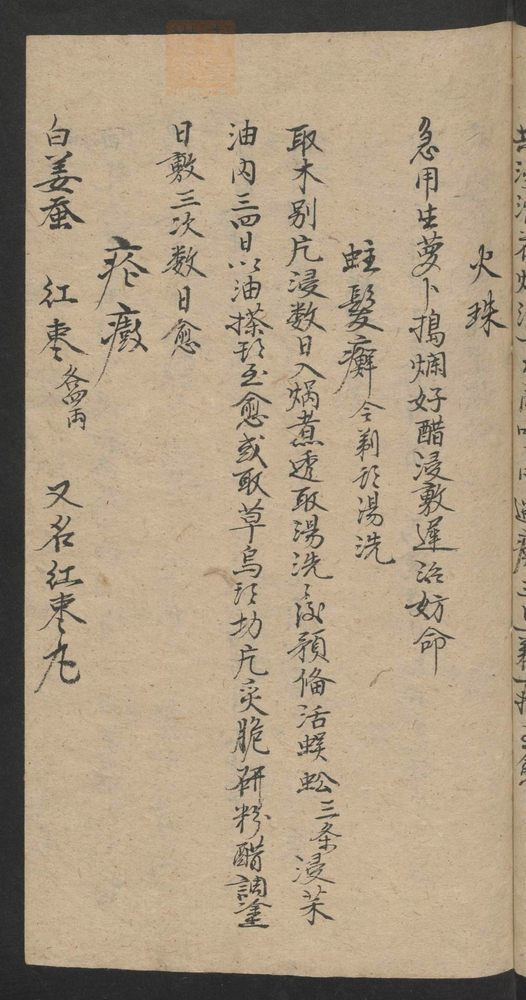 火珠
急用生萝卜搗爛好醋浸敷遲治妨命
蛀髮癬 令剃頭湯洗
取木别片浸数日入煱煮透取湯洗洗後預俻活蜈蚣三条浸菜
油内三四日以油搽頭至愈或取草烏頭切片炙脆研粉醋調塗
日敷三次数日愈
痧癥
白姜蚕 红枣 各四両 又名红枣丸